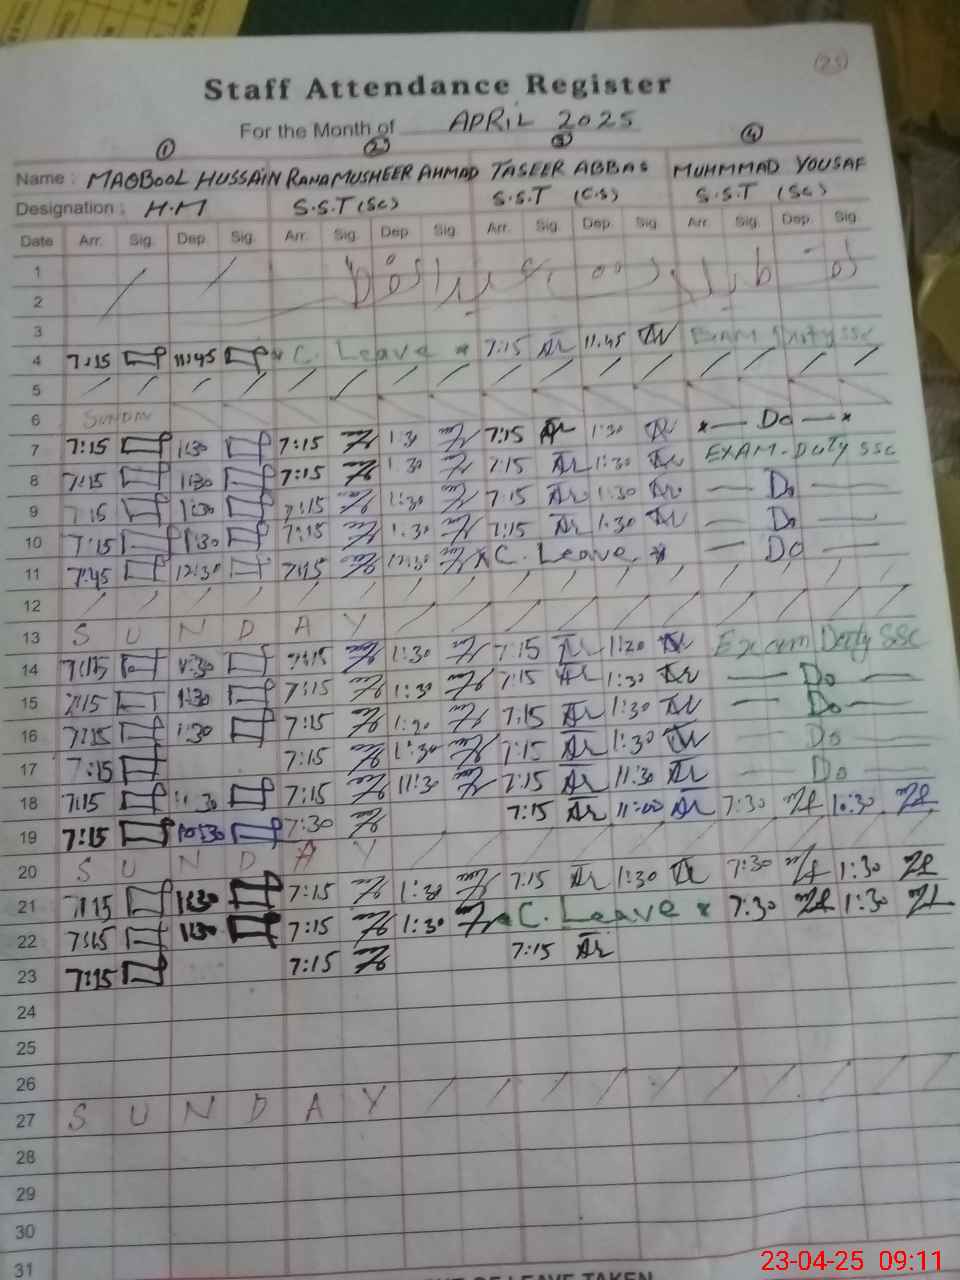 (25)
Staff Attendance Register
For the Month of APRIL 2025
① ② ③ ④
Name : MAQBOOL HUSSAIN RANA MUSHEER AHMAD TASEER ABBAS MUHMMAD YOUSAF
Designation : H.M S.S.T (Sc) S.S.T (C.S) S.S.T (Sc)
Date Arr. Sig. Dep. Sig. Arr. Sig. Dep. Sig. Arr. Sig. Dep. Sig. Arr. Sig. Dep. Sig.
1
2
3
4 7:15 11:45 C. Leave 7:15 11:45 Exam Duty SSC
5
6 SUNDAY
7 7:15 1:30 7:15 1:30 7:15 1:30 Do
8 7:15 1:30 7:15 1:30 7:15 1:30 EXAM-Duty SSC
9 7:15 1:30 7:15 1:30 7:15 1:30 Do
10 7:15 1:30 7:15 1:30 7:15 1:30 Do
11 7:45 12:30 7:15 12:30 C. Leave Do
12
13 S U N D A Y
14 7:15 1:30 7:15 1:30 7:15 1:20 Excam Duty SSC
15 7:15 1:30 7:15 1:30 7:15 1:30 Do
16 7:15 1:30 7:15 1:30 7:15 1:30 Do
17 7:15 7:15 1:30 7:15 1:30 Do
18 7:15 11:30 7:15 11:30 7:15 11:30 Do
19 7:15 10:30 7:30 7:15 11:00 7:30 10:30
20 S U N D A Y
21 7:15 1:30 7:15 1:30 7:15 1:30 7:30 1:30
22 7:15 1:30 7:15 1:30 C. Leave 7:30 1:30
23 7:15 7:15 7:15
24
25
26
27 S U N D A Y
28
29
30
31
OF LEAVE TAKEN
23-04-25 09:11